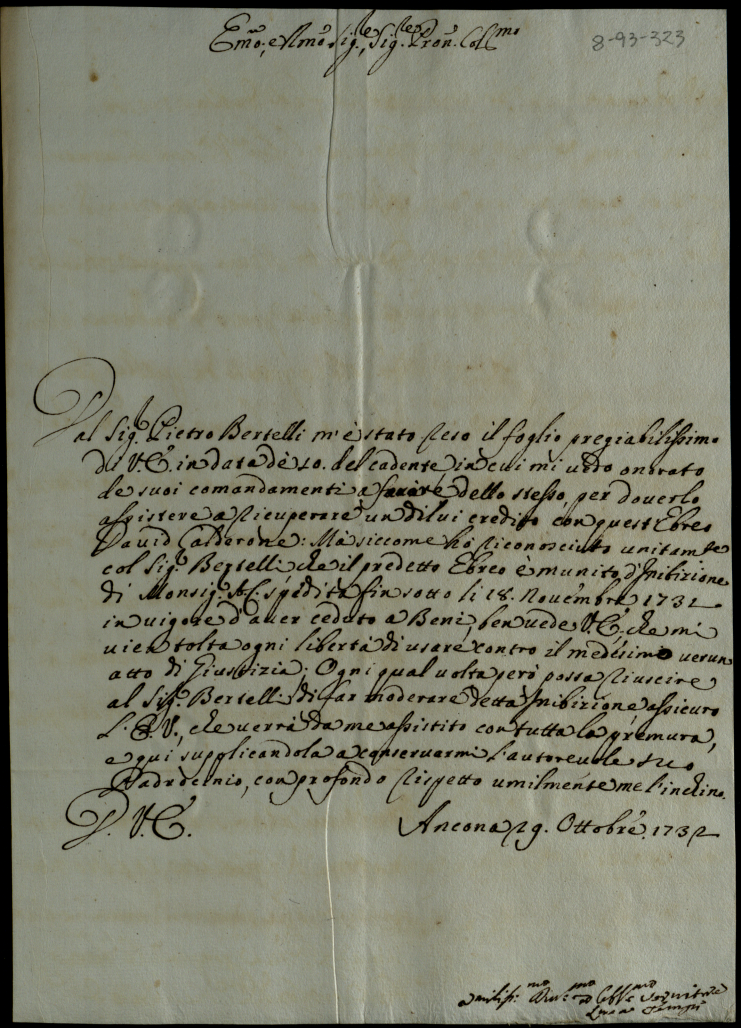 Emo, e Rmo Sig.re, Sig.re Pron. Col.mo
8-93-323
Dal Sig.r Pietro Bertelli m'è stato reso il foglio pregiabilissimo
di V.E. in data de 10. del cadente, in cui mi vedo onorato
de suoi comandamenti a favore dello stesso, per doverlo
assistere a ricuperare un di lui credito con quest'Ebreo
David Calderone: Ma siccome hò riconosciuto unitam.te
col Sig.r Bertelli, che il predetto Ebreo è munito d'Inibizione
di Monsig.r A.C. spedita fin sotto li 18. Novembre 1731
in vigore d'aver ceduto a Beni, ben vede V.E. che mi
vien tolta ogni libertà di usare contro il medesimo verun
atto di Giustizia; Ogni qual volta però possa riuscire
al Sig.r Bertelli di far moderare detta Inibizione assicuro
l'E.V., che verrà da me assistito con tutta la premura,
e qui supplicandola a conservarmi l'autorevole suo
Padrocinio, con profondo rispetto umilmente me l'inchino.
D. V.E.
Ancona 29. Ottobre 1732
Umilis.mo Div.mo ed Obb.mo Servitore
Luca Tempi